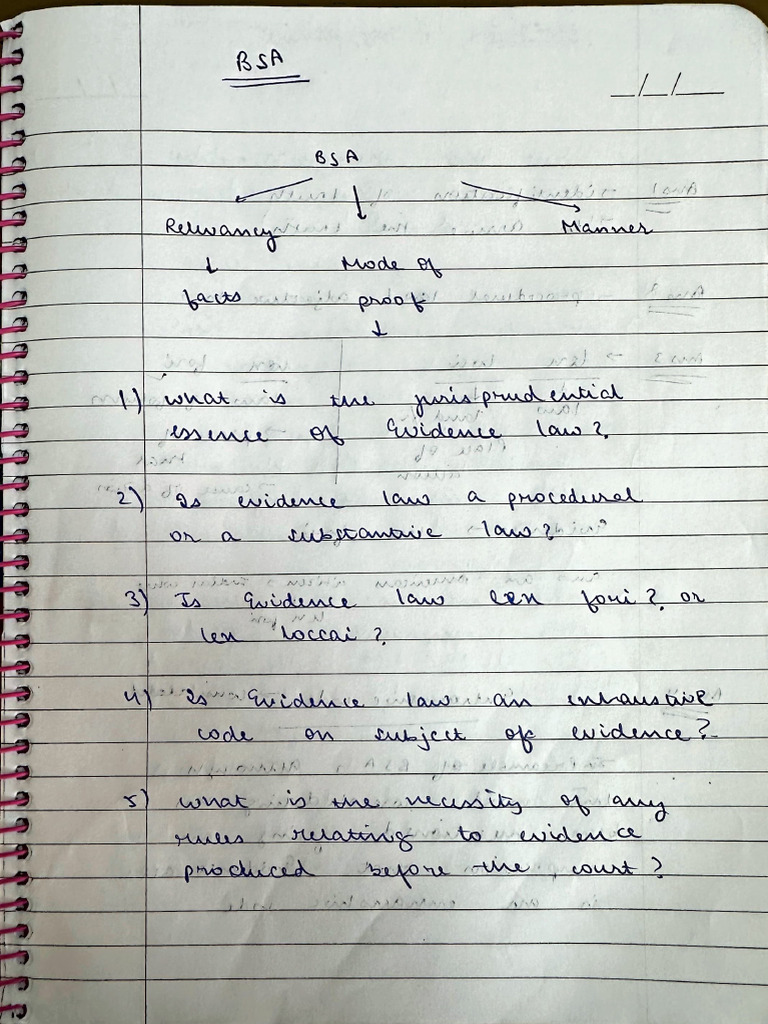 BSA
_/_/__
BSA
Relevancy Manner
↓ Mode of
facts proof
↓
1) what is the jurisprudential
essence of Evidence law?
2) Is evidence law a procedural
or a substantive law?
3) Is Evidence law lex fori? or
lex loccai?
4) Is Evidence law an exhaustive
code on subject of evidence?
5) what is the necessity of any
rules relating to evidence
produced before the court?